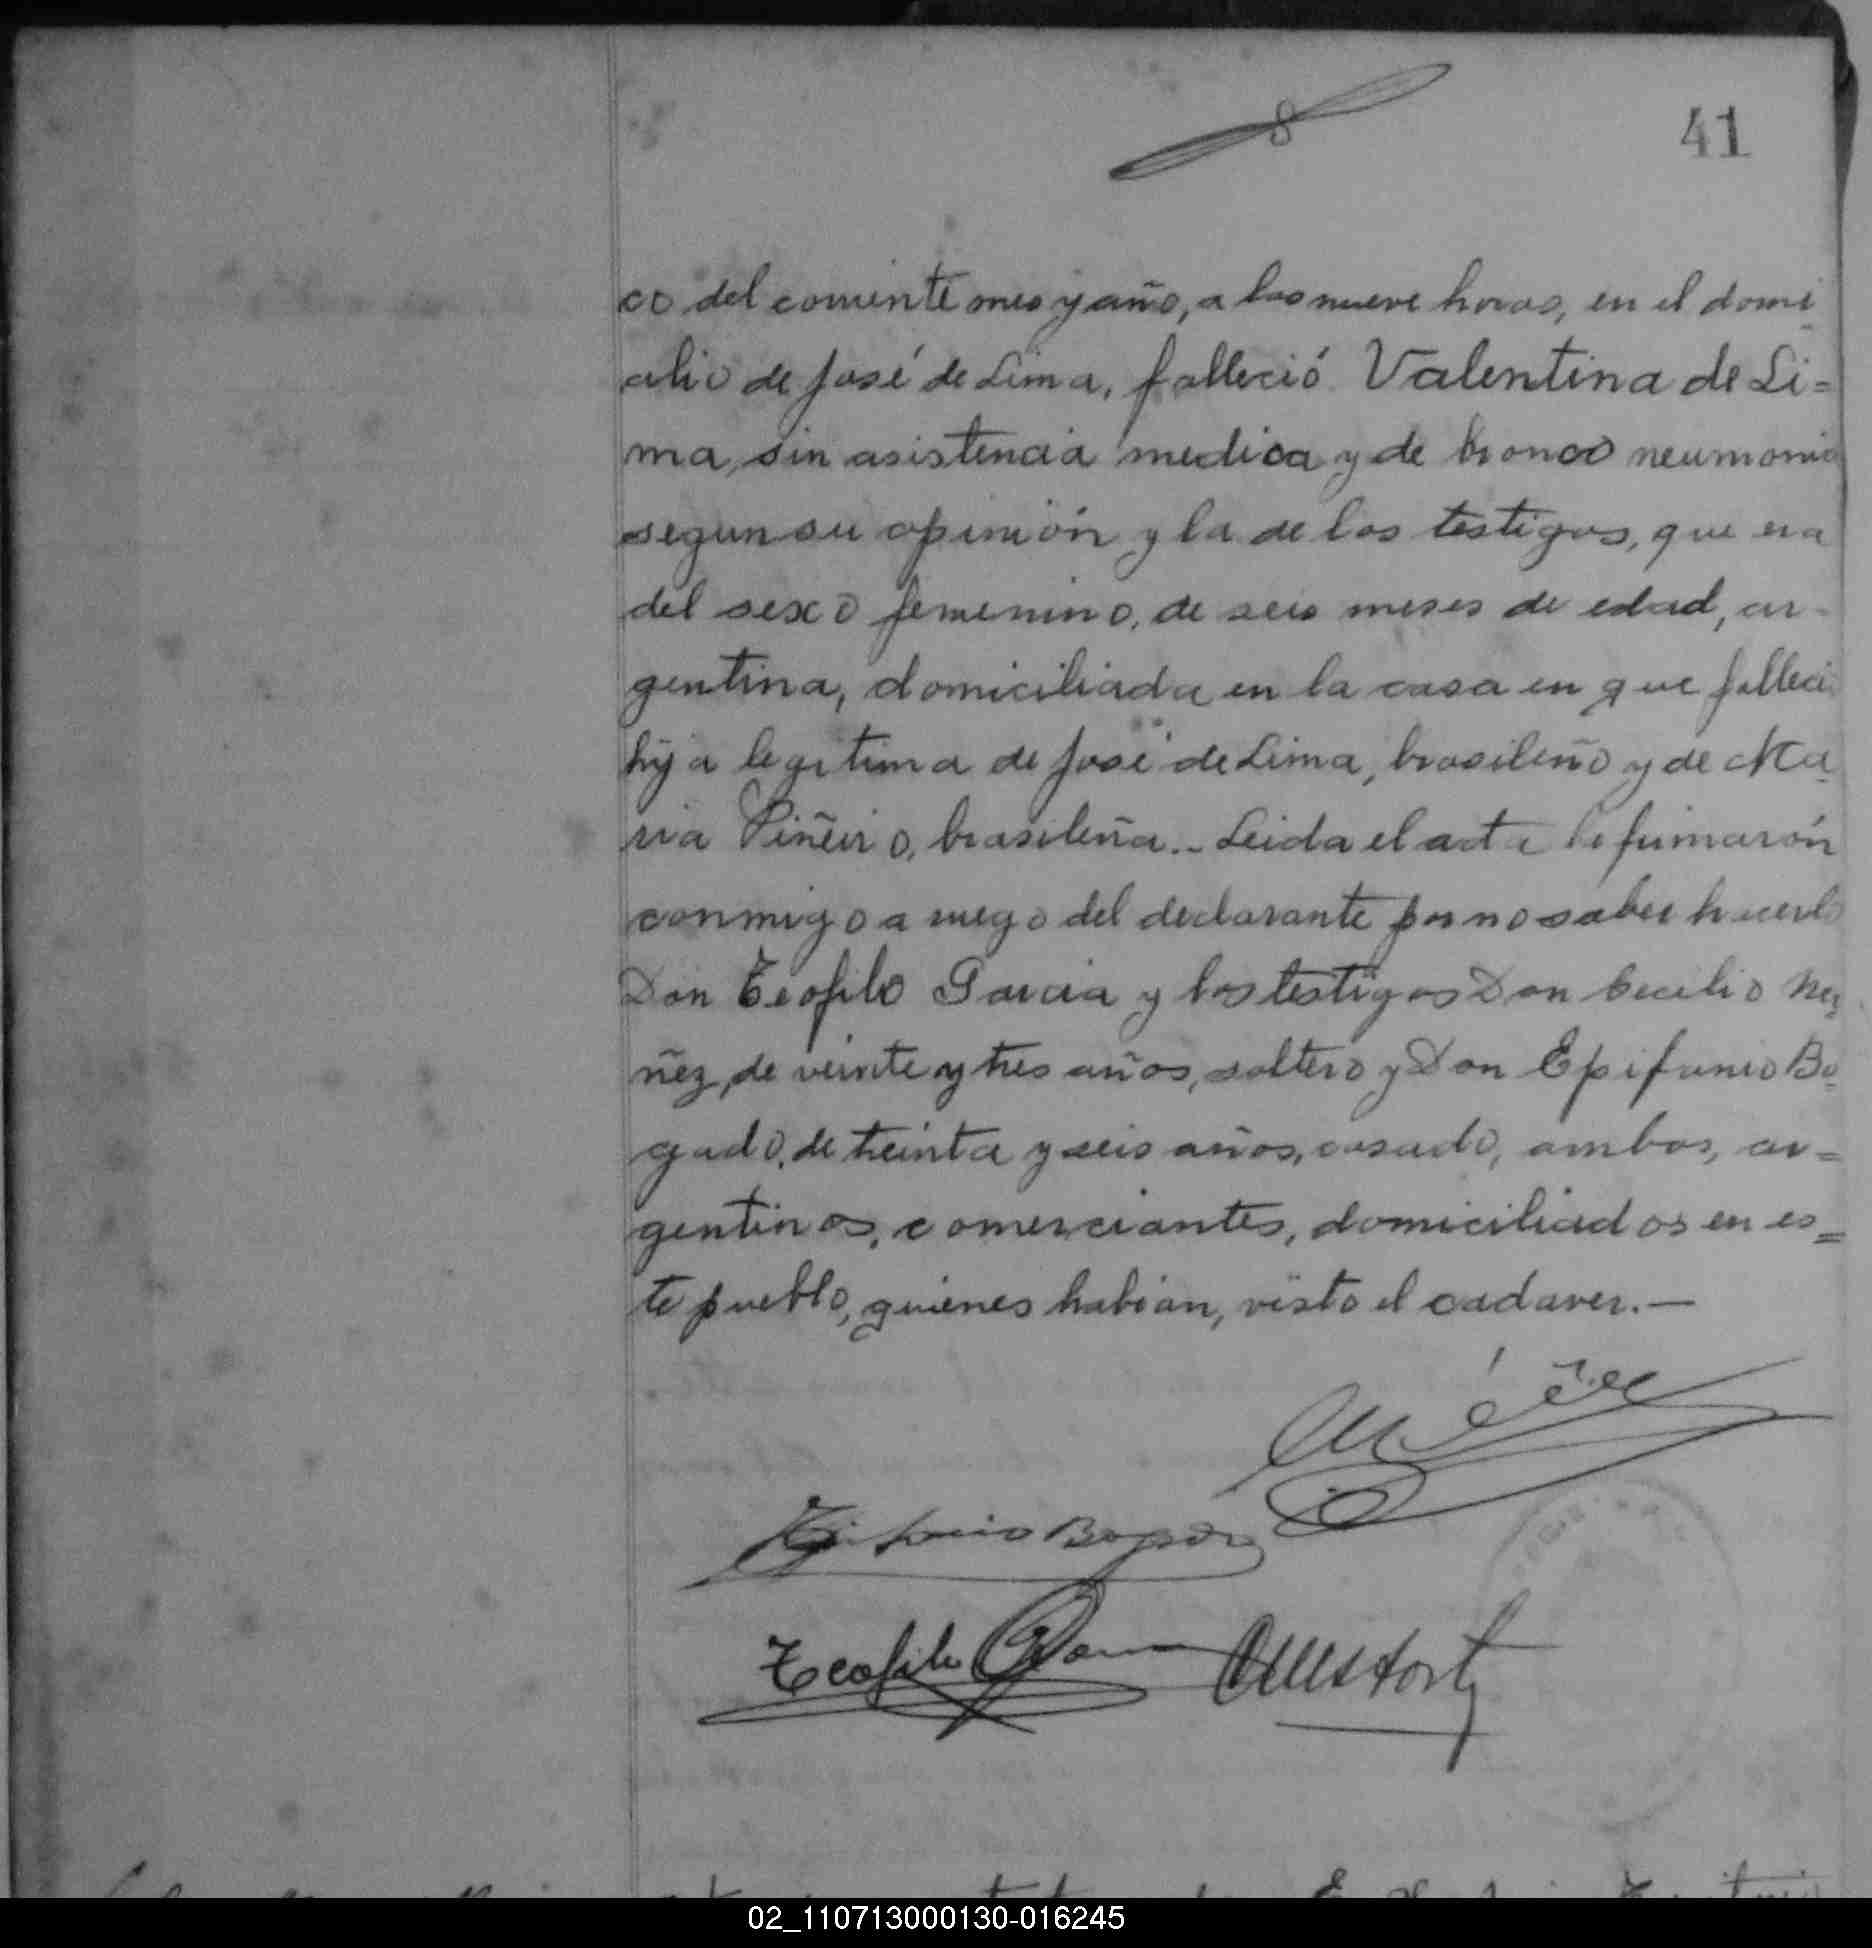 8
41
co del corriente mes y año, a las nueve horas, en el domi
cilio de José de Lima, falleció Valentina de Li=
ma, sin asistencia medica y de bronco neumonia
segun su opinión y la de los testigos, que era
del sexo femenino, de seis meses de edad, ar-
gentina, domiciliada en la casa en que falleci
hija legitima de José de Lima, brasileño y de Ma
ria Piñeiro, brasileña.- Leida el acta la firmarón
conmigo a ruego del declarante por no saber hacerlo
Don Teofilo Garcia y los testigos Don Cecilio
ñez, de veinte y tres años, soltero y Don Epifanio Bo
gado, de treinta y seis años, casado, ambos, ar=
gentinos, comerciantes, domiciliados en es=
te pueblo, quienes habian, visto el cadaver.—
Epifanio Bogado
Teofilo
02_110713000130-016245